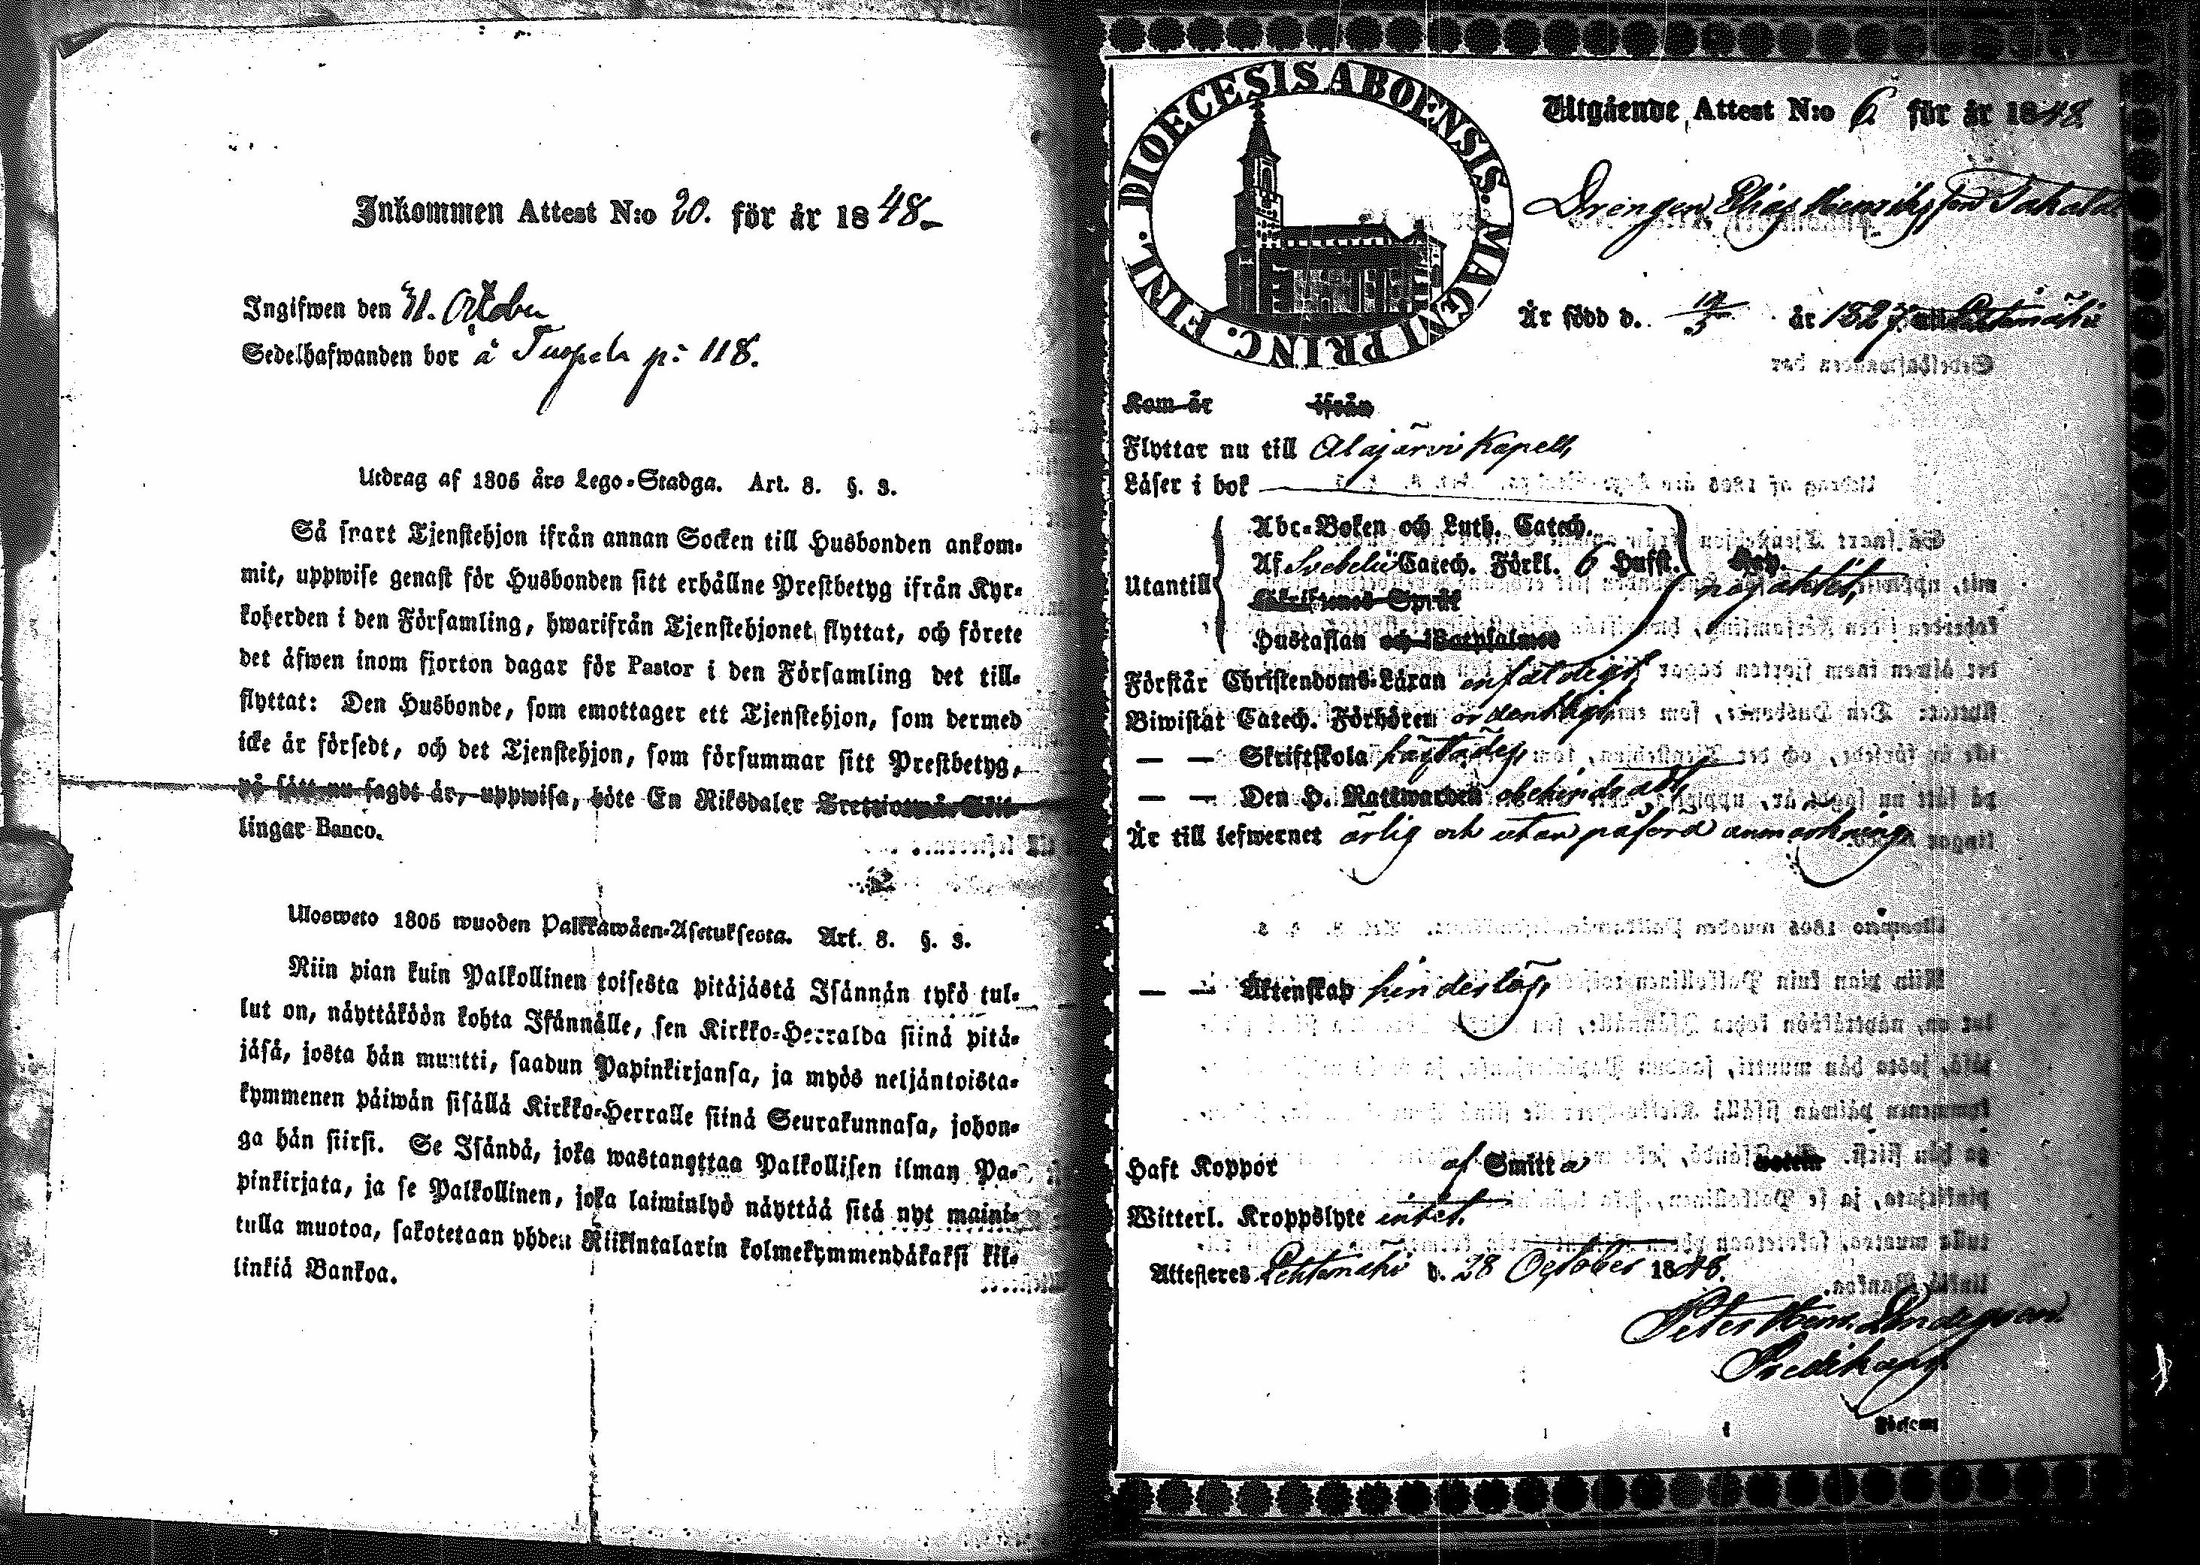 Inkommen Attest N:o 20. för år 1848.
Ingifwen den 31. October
Sedelhafwanden bor å p: 118.
Utdrag af 1805 års Lego-Stadga. Art. 8. §. 3.
Så snart Tjenstehjon ifrån annan Socken till Husbonden ankom-
mit, uppwise genast för Husbonden sitt erhållne Prestbetyg ifrån Kyr-
koherden i den Församling, hwarifrån Tjenstehjonet flyttat, och förete
det äfwen inom fjorton dagar för Pastor i den Församling det till-
flyttat: Den Husbonde, som emottager ett Tjenstehjon, som dermed
icke är försedt, och det Tjenstehjon, som försummar sitt Prestbetyg,
på sätt nu sagdt är, uppwisa, böte En Riksdaler Trettiotwå Skil-
lingar Banco.
Ulosweto 1805 wuoden Palkkawäen-Asetuksesta. Art. 8. §. 3.
Niin pian kuin Palkollinen toisesta pitäjästä Isännän tykö tul-
lut on, näyttäköön kohta Isännälle, sen Kirkko-Herralda siinä pitä-
jäsä, josta hän muutti, saadun Papinkirjansa, ja myös neljäntoista-
kymmenen päiwän sisällä Kirkko-Herralle siinä Seurakunnasa, johon-
ga hän siirsi. Se Isändä, joka wastanottaa Palkollisen ilman Pa-
pinkirjata, ja se Palkollinen, joka laiminlyö näyttää sitä nyt maini-
tulla muotoa, sakotetaan yhden Riikintalarin kolmekymmendäkaksi kil-
linkiä Bankoa.
DIOECESIS ABOENSIS. MAGNI PRINC. FINL.
Utgående Attest N:o 6 för år 1848.
Drengen Elias Henriksson Takala
Är född d. 12/3 år 1827 Lehtimäki
Kom år ifrån
Flyttar nu till Alajärvi Kapell,
Läser i bok
Utantill
Abc-Boken och Luth. Catech.
Af Svebelii Catech. Förkl. 6 Hufst.
Skriftenes Språk
Hustaflan och Botpsalmer
någorlunda,
Förstår Christendoms-Läran enfaldigt,
Biwistat Catech. Förhören ordentligt,
— — Skriftskola
— — Den H. Nattwarden obehindradt,
Är till lefwernet ärlig och utan påförd anmärkning,
— — Äktenskap hinderslös,
Haft Koppor af Smitta
Witterl. Kroppslyte intet.
Attesteras Lehtimäki d. 28 October 1848.
Peter Henr.
Predikant